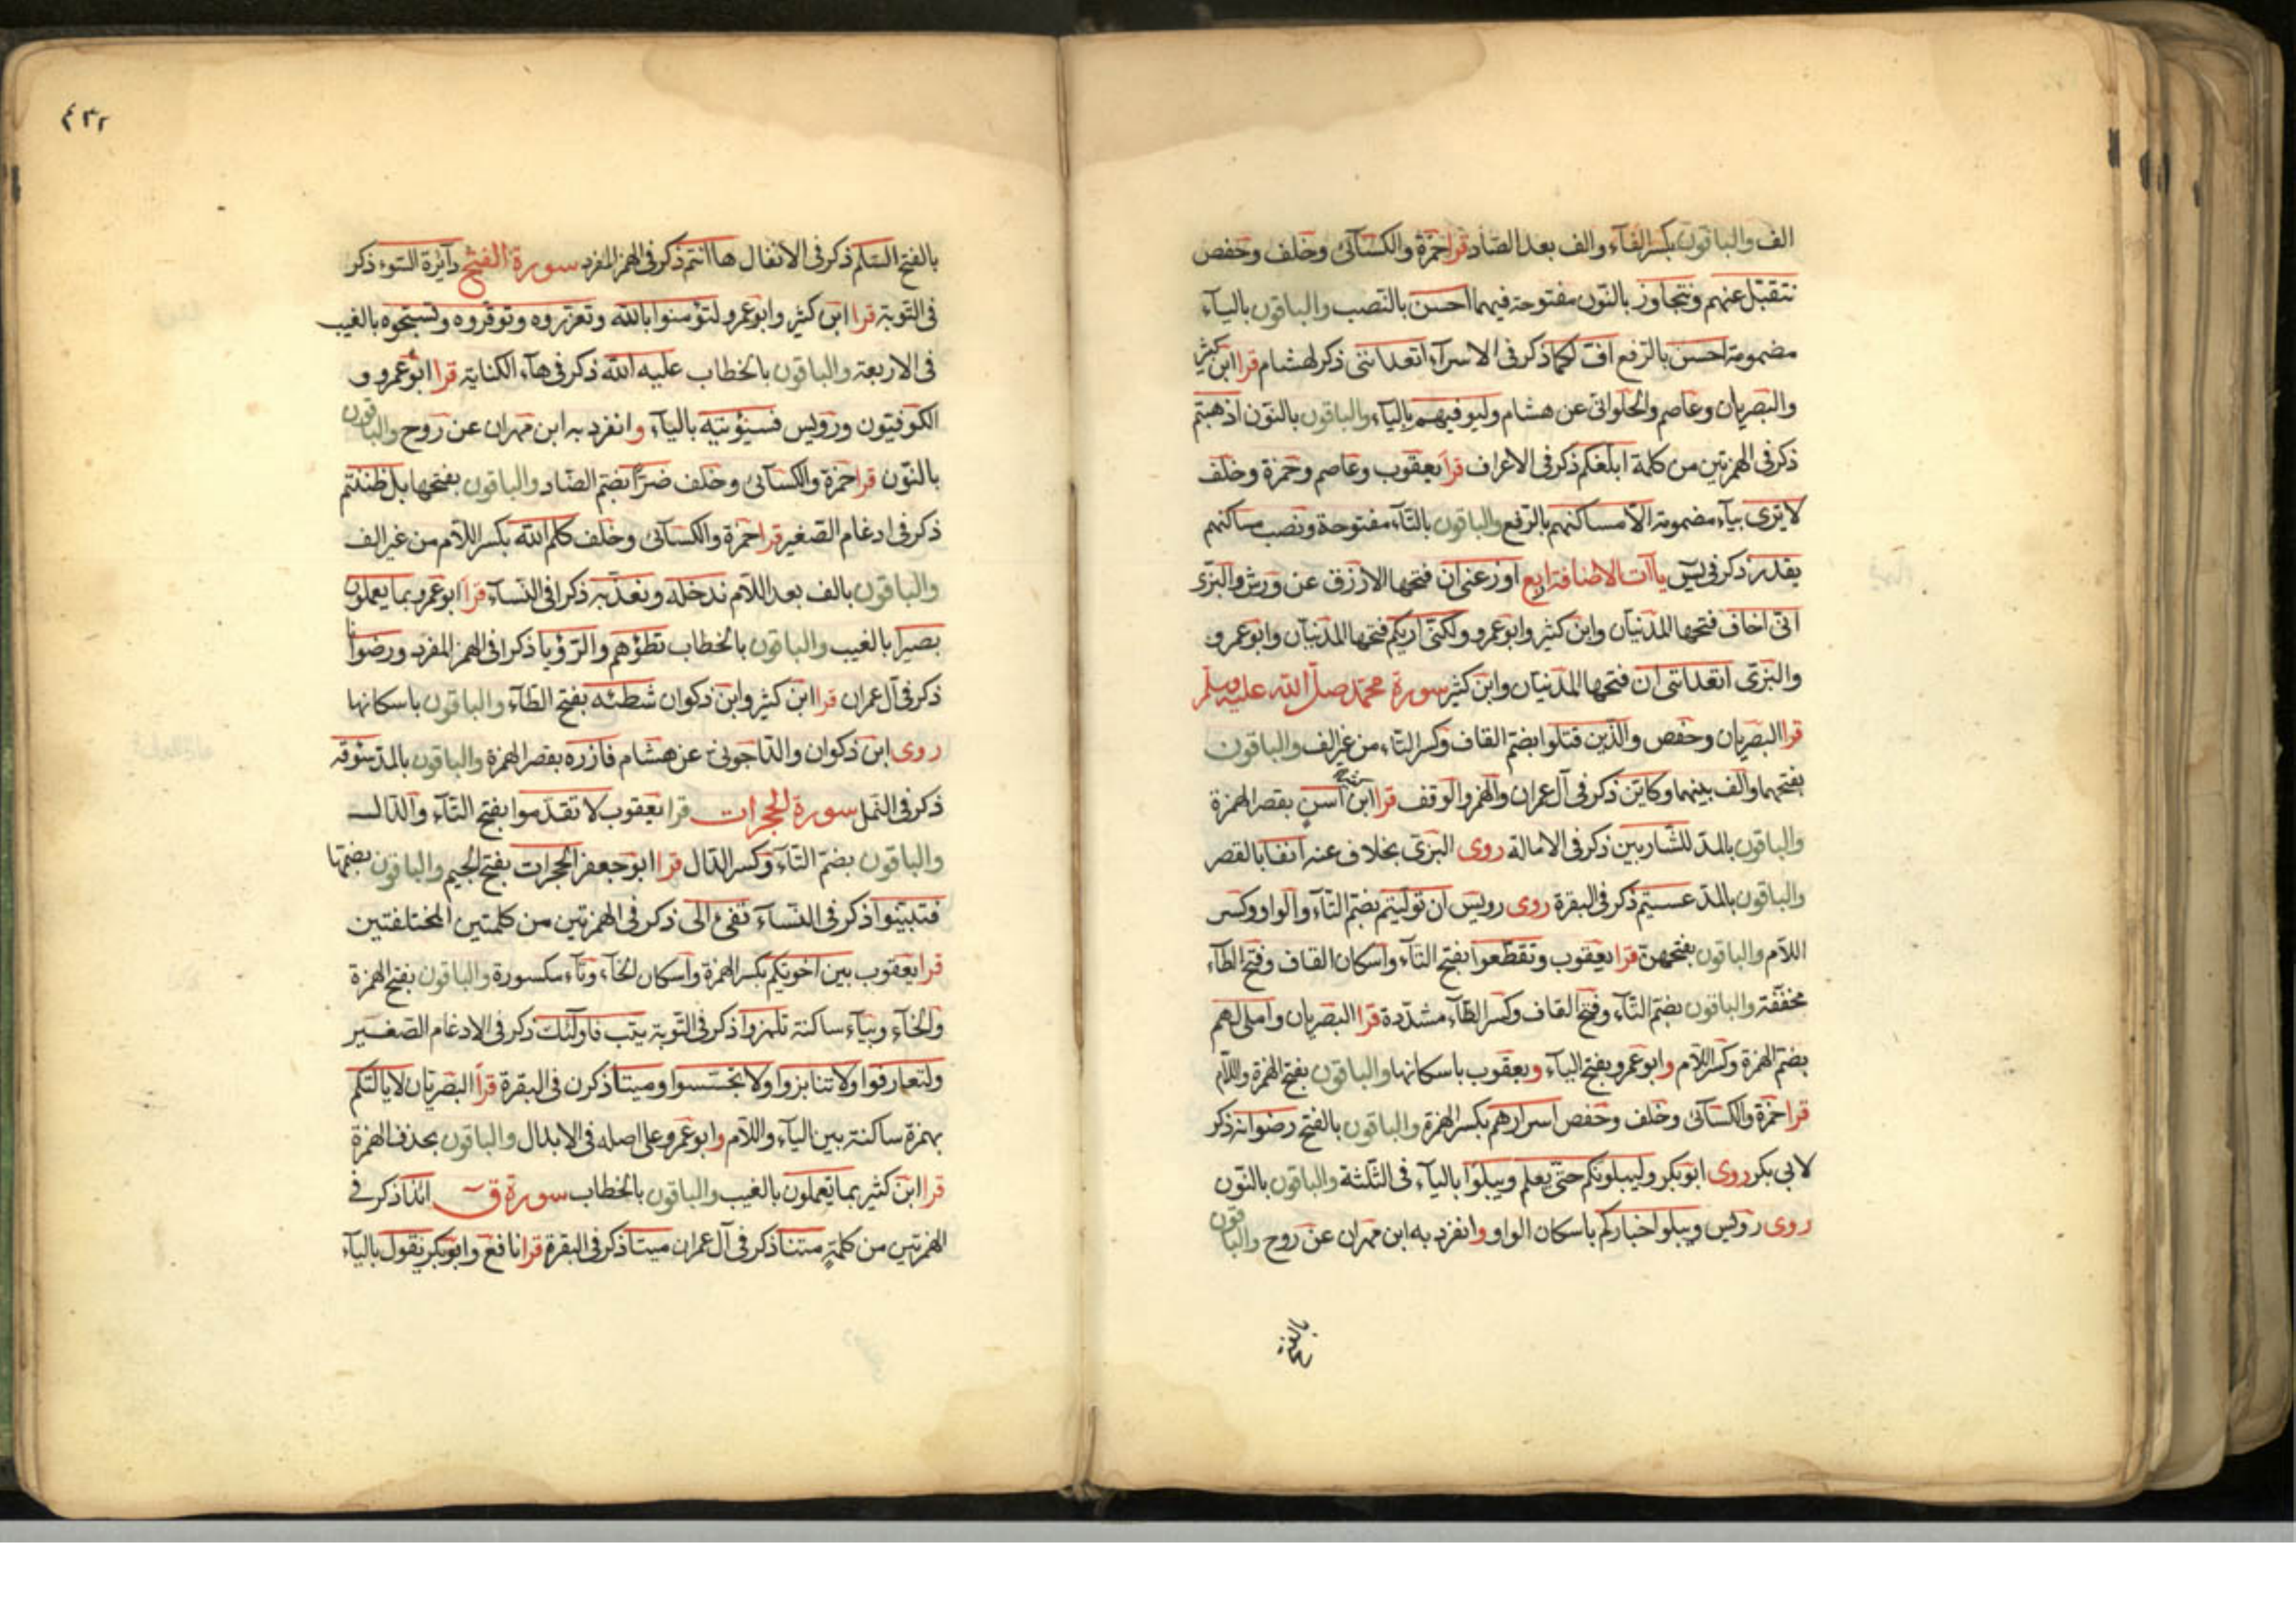 الف والباقون بكسر الفآء والف بعد الصّاد قرا حمزة والكسآئى وخلف وحفص
نتقبّل عنهم ونتجاوز بالنّون مفتوحة فيهما احسن بالنّصب والباقون باليآء
مضمومة احسن بالرّفع افّ لكما ذكر فى الاسرآء اتعداننى ذكر لهشام قرا ابن كثير
والبصريان وعاصم والحلوانىّ عن هشام وليوفيهم باليآء والباقون بالنّون اذهبتم
ذكر فى الهمزتين من كلمة ابلغكم ذكر فى الاعراف قرا يعقوب وعاصم وحمزة وخلف
لا يرى بيآء مضمومة الّا مساكنهم بالرّفع والباقون بالتّآء مفتوحة ونصب مساكنهم
بقدر ذكر فى يس ياآت الاضافة اربع اوزعنى ان فتحها الازرق عن ورش والبزّى
انّى اخاف فتحها المدنيان وابن كثير وابو عمرو ولكنّى اريكم فتحها المدنيان وابو عمرو
والبزّى اتعداننى ان فتحها المدنيان وابن كثير سورة محمّد صلّى الله عليه وسلّم
قرا البصريان وحفص والّذين قتلوا بضمّ القاف وكسر التّاء من غير الف والباقون
بفتحهما والف بينهما وكايّن ذكر فى آل عمران والهمز والوقف قرا ابن كثير اسن بقصر الهمزة
والباقون بالمدّ للشّاربين ذكر فى الامالة روى البزّى بخلاف عنه انفا بالقصر
والباقون بالمدّ عسيتم ذكر فى البقرة روى رويس ان تولّيتم بضمّ التّآء والواو وكسر
اللّام والباقون بفتحهنّ قرا يعقوب وتقطعوا بفتح التّآء واسكان القاف وفتح الطّآء
مخفّفة والباقون بضمّ التّآء وفتح القاف وكسر الطّآء مشدّدة قرا البصريان واملى لهم
بضمّ الهمزة وكسر اللّام وابو عمرو بفتح اليآء ويعقوب باسكانها والباقون بفتح الهمزة واللّام
قرا حمزة والكسآئى وخلف وحفص اسرارهم بكسر الهمزة والباقون بالفتح رضوانه ذكر
لابى بكر روى ابو بكر وليبلونّكم حتّى يعلم ويبلوا باليآء فى الثّلثة والباقون بالنّون
روى رويس ويبلوا اخباركم باسكان الواو وانفرد به ابن مهران عن روح والباقون
٤٣٢
بالفتح السّلم ذكر فى الانفال هاانتم ذكر فى الهمز المفرد سورة الفتح دآئرة السّوء ذكر
فى التّوبة قرا ابن كثير وابو عمرو لتؤمنوا بالله وتعزّروه وتوقّروه وتسبّحوه بالغيب
فى الاربعة والباقون بالخطاب عليه الله ذكر فى هآء الكناية قرا ابو عمرو و
الكوفيّون ورويس فسيؤتيه باليآء وانفرد به ابن مهران عن روح والباقون
بالنّون قرا حمزة والكسآئى وخلف ضرّا بضمّ الضّاد والباقون بفتحها بل ظننتم
ذكر فى ادغام الصّغير قرا حمزة والكسآئى وخلف كلم الله بكسر اللّام من غير الف
والباقون بالف بعد اللّام ندخله ونعذّبه ذكرا فى النّسآء قرا ابو عمرو بما يعملون
بصيرا بالغيب والباقون بالخطاب تطؤهم والرّؤيا ذكرا فى الهمز المفرد ورضوانا
ذكر فى آل عمران قرا ابن كثير وابن ذكوان شطئه بفتح الطّآء والباقون باسكانها
روى ابن ذكوان والدّاجونىّ عن هشام فازره بقصر الهمزة والباقون بالمدّ سوقه
ذكر فى النّمل سورة الحجرات قرا يعقوب لا تقدّموا بفتح التّآء والدّال
والباقون بضمّ التّآء وكسر الدّال قرا ابو جعفر الحجرات بفتح الجيم والباقون بضمّها
فتبيّنوا ذكر فى النّسآء تفىء الى ذكر فى الهمزتين من كلمتين المختلفتين
قرا يعقوب بين اخوتكم بكسر الهمزة واسكان الخآء وتآء مكسورة والباقون بفتح الهمزة
والخآء وبيآء ساكنة تلمزوا ذكر فى التّوبة يتب فاولئك ذكر فى الادغام الصّغير
ولتعارفوا ولا تنابزوا ولا تجسّسوا وميتا ذكرن فى البقرة قرا البصريان لا يالتكم
بهمزة ساكنة بين اليآء واللّام وابو عمرو على اصله فى الابدال والباقون بحذف الهمزة
قرا ابن كثير بما يعملون بالغيب والباقون بالخطاب سورة ق ائذا ذكر فى
الهمزتين من كلمة متنا ذكر فى آل عمران ميتا ذكر فى البقرة قرا نافع وابو بكر نقول باليآء